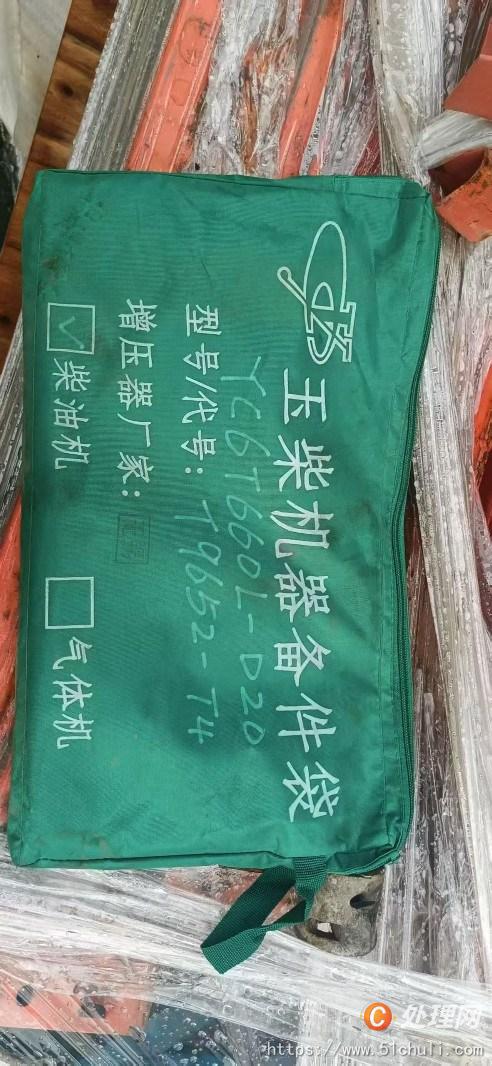 玉柴机器备件袋
YC6T660L-D20
型号/代号: T9652-T4
增压器厂家:
柴油机
气体机
处理网
https://www.51chuli.com